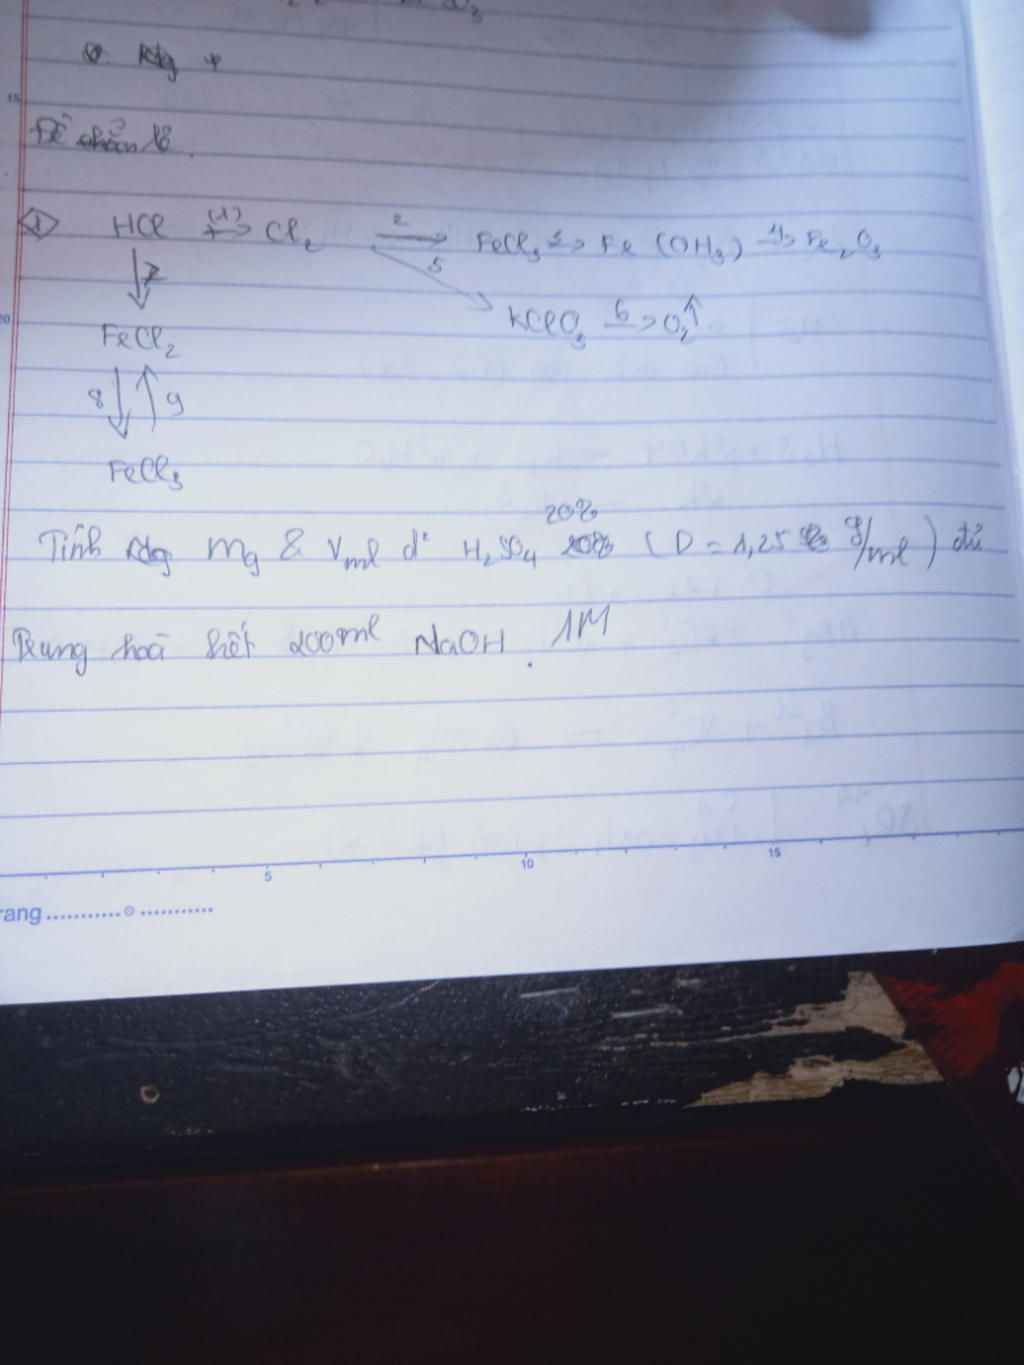 15
Đề chẵn lẻ.
1 HCl (1)→ Cl2 2→ FeCl3 3→ Fe (OH3) 4→ Fe2O3
7 5
20
KClO3 6→ O2↑
FeCl2
8 9
FeCl3
20%
Tính mg & Vml d² H2SO4 (D = 1,25 g/ml) đủ
Trung hoà hết 200ml NaOH. 1M
5 10 15
rang